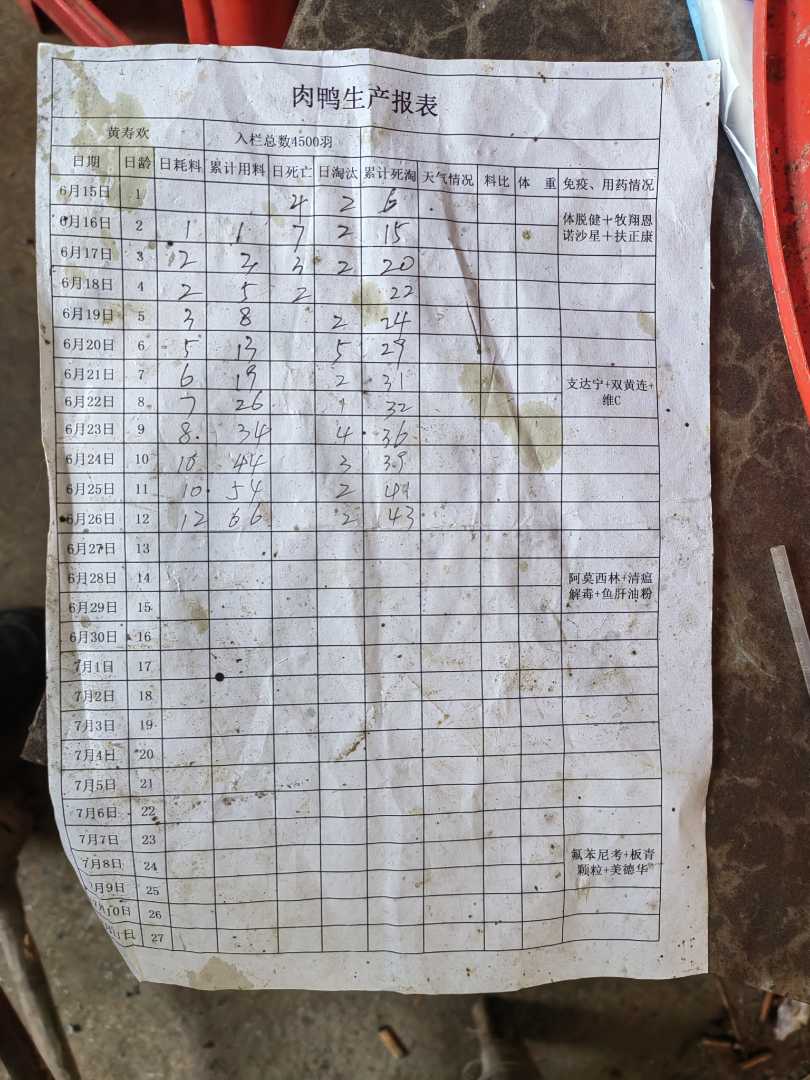 肉鸭生产报表
黄寿欢 入栏总数4500羽
日期 日龄 日耗料 累计用料 日死亡 日淘汰 累计死淘 天气情况 料比 体 重 免疫、用药情况
6月15日 1 4 2 6
6月16日 2 1 1 7 2 15
体脱健+牧翔恩
诺沙星+扶正康
6月17日 3 2 3 2 20
6月18日 4 2 5 2 22
6月19日 5 3 8 2 24
6月20日 6 5 13 5 29
6月21日 7 6 19 2 31
支达宁+双黄连+
维C
6月22日 8 7 26 1 32
6月23日 9 8 34 4 36
6月24日 10 10 44 3 39
6月25日 11 10 54 2 41
6月26日 12 12 66 2 43
6月27日 13
6月28日 14
阿莫西林+清瘟
解毒+鱼肝油粉
6月29日 15
6月30日 16
7月1日 17
7月2日 18
7月3日 19
7月4日 20
7月5日 21
7月6日 22
7月7日 23
7月8日 24
氟苯尼考+板青
颗粒+美德华
月9日 25
月10日 26
1日 27